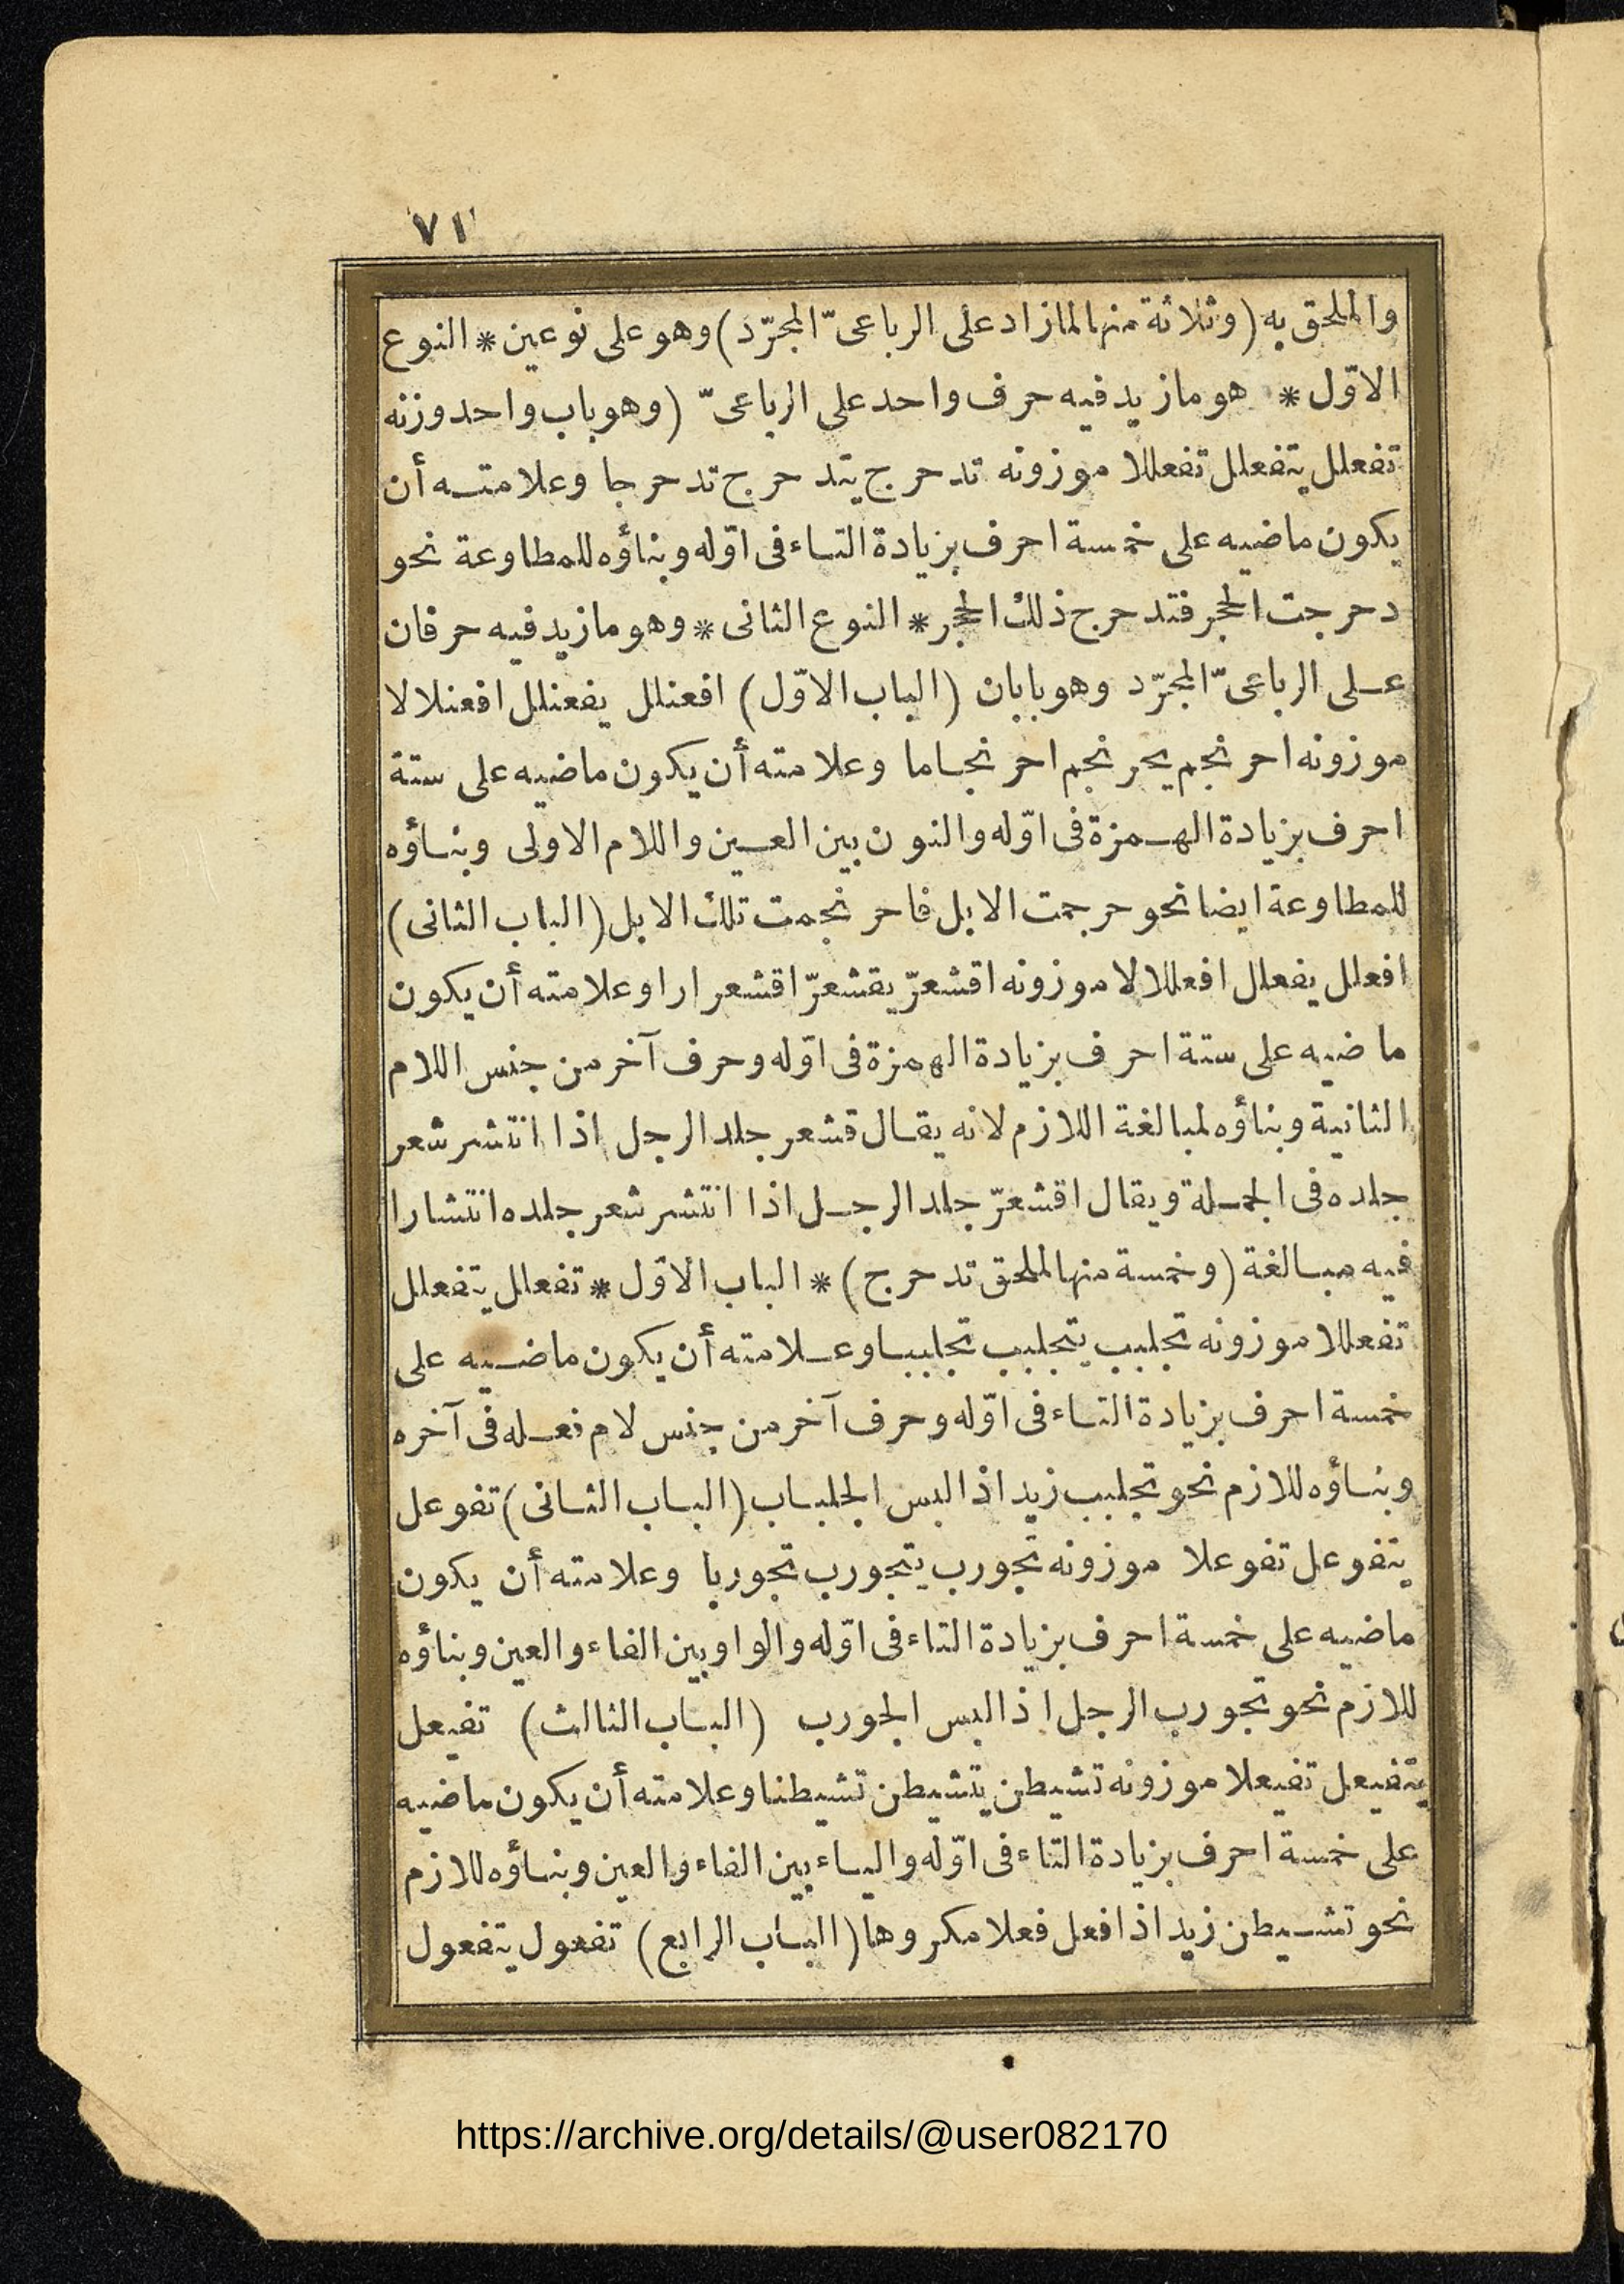 ٧١
والملحق به (وثلاثة منها لما زاد على الرباعىّ المجرّد) وهو على نوعين * النوع
الاوّل * هو ما زيد فيه حرف واحد على الرباعىّ (وهو باب واحد وزنه
تفعلل يتفعلل تفعللا موزونه تدحرج يتدحرج تدحرجا وعلامته أن
يكون ماضيه على خمسة احرف بزيادة التاء فى اوّله وبناؤه للمطاوعة نحو
دحرجت الحجر فتدحرج ذلك الحجر * النوع الثانى * وهو ما زيد فيه حرفان
على الرباعىّ المجرّد وهو بابان (الباب الاوّل) افعنلل يفعنلل افعنلالا
موزونه احرنجم يحرنجم احرنجاما وعلامته أن يكون ماضيه على ستة
احرف بزيادة الهمزة فى اوّله والنون بين العين واللام الاولى وبناؤه
للمطاوعة ايضا نحو حرجمت الابل فاحرنجمت تلك الابل (الباب الثانى)
افعلل يفعلل افعللالا موزونه اقشعرّ يقشعرّ اقشعرارا وعلامته أن يكون
ماضيه على ستة احرف بزيادة الهمزة فى اوّله وحرف آخر من جنس اللام
الثانية وبناؤه لمبالغة اللازم لانه يقال قشعر جلد الرجل اذا انتشر شعر
جلده فى الجملة ويقال اقشعرّ جلد الرجل اذا انتشر شعر جلده انتشارا
فيه مبالغة (وخمسة منها لملحق تدحرج) * الباب الاوّل * تفعلل يتفعلل
تفعللا موزونه تجلبب يتجلبب تجلببا وعلامته أن يكون ماضيه على
خمسة احرف بزيادة التاء فى اوّله وحرف آخر من جنس لام فعله فى آخره
وبناؤه للازم نحو تجلبب زيد اذا لبس الجلباب (الباب الثانى) تفوعل
يتفوعل تفوعلا موزونه تجورب يتجورب تجوربا وعلامته أن يكون
ماضيه على خمسة احرف بزيادة التاء فى اوّله والواو بين الفاء والعين وبناؤه
للازم نحو تجورب الرجل اذا لبس الجورب (الباب الثالث) تفيعل
يتفيعل تفيعلا موزونه تشيطن يتشيطن تشيطنا وعلامته أن يكون ماضيه
على خمسة احرف بزيادة التاء فى اوّله والياء بين الفاء والعين وبناؤه للازم
نحو تشيطن زيد اذا فعل فعلا مكروها (الباب الرابع) تفعول يتفعول
https://archive.org/details/@user082170